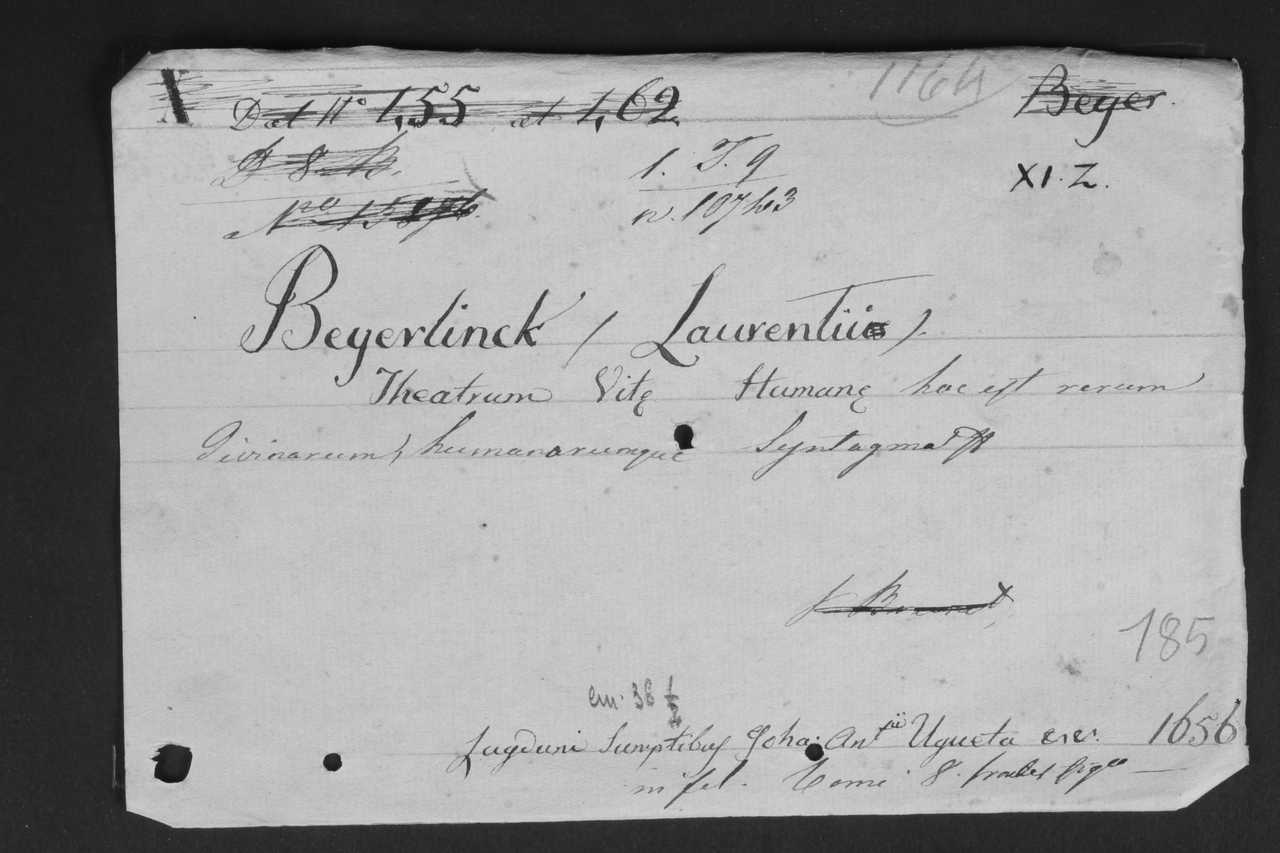 Dat N° 1,55 et 1,62
1164
Beyer.
D 8 B.
1. T. 9
XI. Z.
N.ro
n. 10743
Beyerlinck (Laurentii)
Theatrum Vitę Humanę hoc est rerum
Divinarum, humanarumque Syntagma
185
cm. 38 1/2
Lugduni Sumptibus Joha: Ant.ii Ugueta etc. 1656
in fol. Tomi 8.